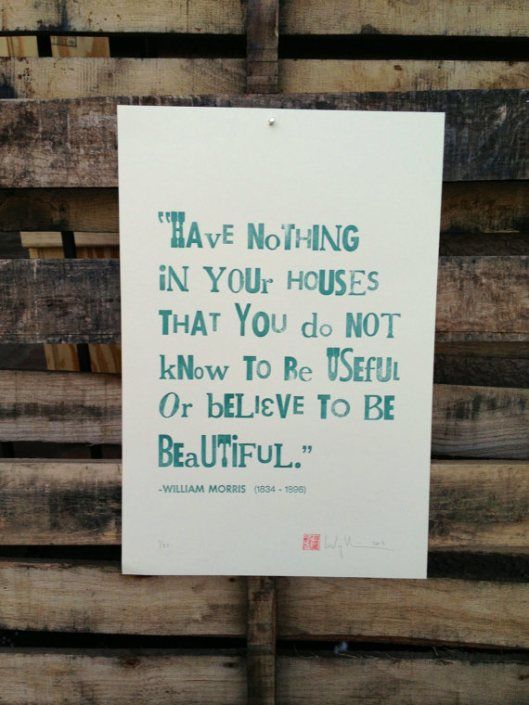 “HAvE NoTHING
iN YOUr HOUSES
THAT YOU do NOT
kNow TO Be USEfUL
Or bELIEVE TO BE
BEaUTiFUL.”
-WILLIAM MORRIS (1834 - 1896)